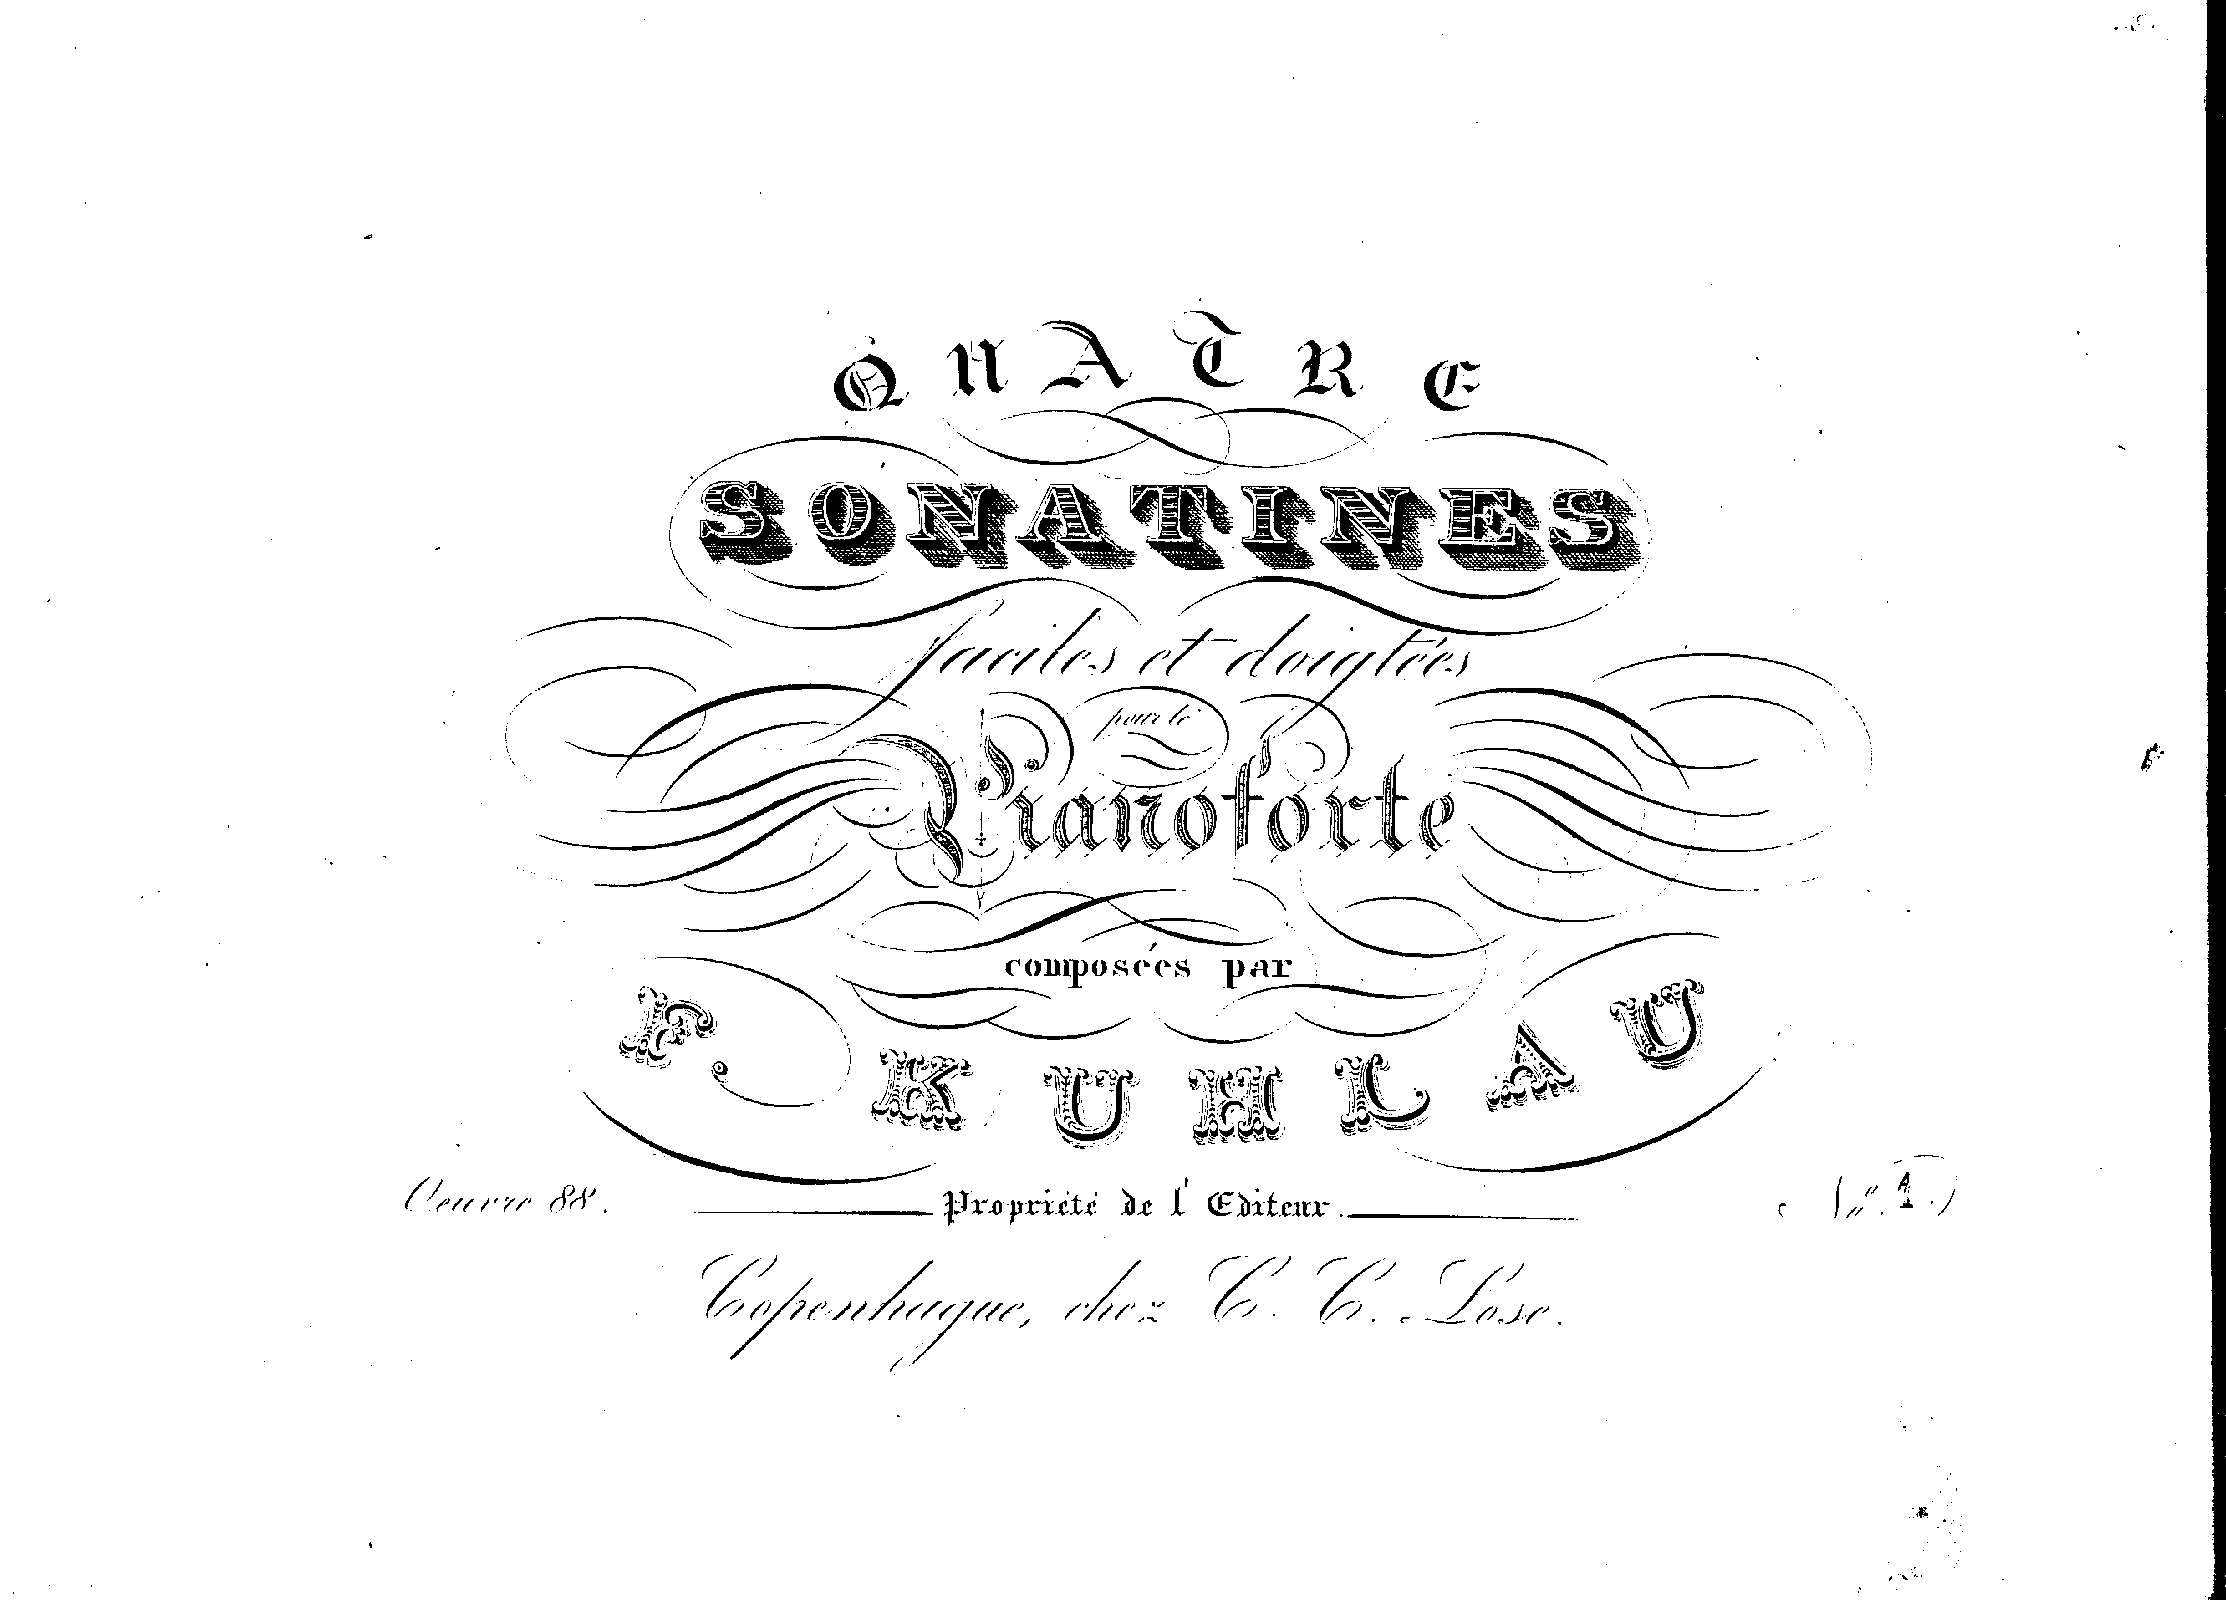 QUATRE
SONATINES
faciles et doigtées
pour le
Pianoforte
composées par
F. KUHLAU
Oeuvre 88. Propriété de l'Editeur. No. 1.
Copenhague, chez C. C. Lose.